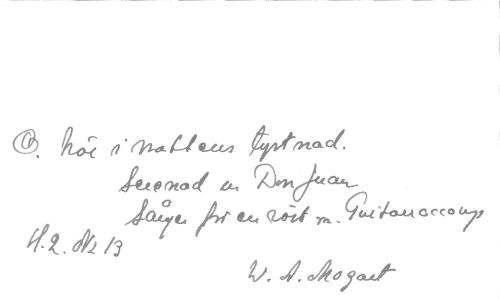 O, hör i nattens tystnad.
Serenad ur Don Juan
Sånger för en röst m. Guitarraccomp
H. 2. No 13
W. A. Mozart